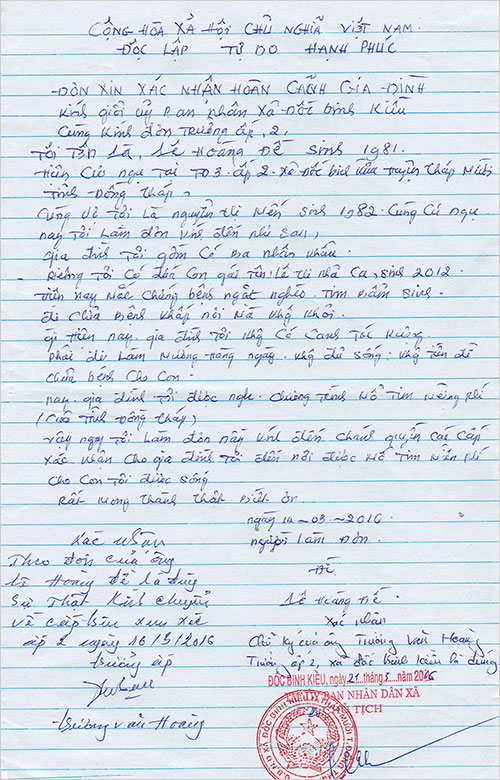 CỘNG HÒA XÃ HỘI CHỦ NGHĨA VIỆT NAM.
ĐỘC LẬP TỰ DO HẠNH PHÚC
ĐƠN XIN XÁC NHẬN HOÀN CẢNH GIA ĐÌNH
Kính gởi Uỷ Ban nhân Xã Đốc Binh Kiều
Cùng Kính đơn Trưởng ấp, 2,
Tôi Tên Là, Lê Hoàng Đế sinh 1981.
Hiện Cư ngụ Tại TĐ3. ấp 2. Xã Đốc binh Kiều Huyện Tháp Mười
Tỉnh Đồng Tháp,
Cùng Vợ Tôi là nguyễn thị Mến sinh 1982. Cùng Cư ngụ
nay Tôi Làm đơn Kính đến như sau,
gia đình Tôi gồm Có Ba nhân khẩu.
Riêng Tôi Có đứa Con gái Tên: Lê thị nhã Ca, sinh 2012.
Hiện nay Mắc Chứng bệnh ngặt nghèo. Tim Bẩm Sinh.
đi Chữa Bệnh Khắp nơi Mà Khg Khỏi.
Hiện nay. gia đình Tôi Khg Có Canh Tác Ruộng
Phải đi Làm Mướng Hàng ngày. Khg đủ sống. Khg Tiền để
chữa bệnh Cho Con.
nay. gia đình Tôi được nghe. Chương Trình Mổ Tim Miễng Phí
(Của Tỉnh Đồng Tháp)
Vậy nay Tôi Làm đơn này Kính đến Chánh quyền Các Cấp
Xác nhận Cho gia đình Tôi đến nơi được Mổ Tim Miễn Phí
Cho Con Tôi được sống
Rất Mong Thành Thật Biết ơn
ngày 14-03-2016
người Làm Đơn.
Đế
Lê Hoàng Đế
Xác nhận
Theo đơn của ông
Lê Hoàng Đế là đúng
Sự Thật Kính chuyển
về cấp trên xem xét
ấp 2 ngày 16/3/2016
trưởng ấp
trương văn Hoàng
Xác nhận
Chữ ký của ông Trương Văn Hoàng
Trưởng ấp 2, xã Đốc Binh Kiều là đúng
ĐỐC BINH KIỀU, ngày 21 tháng 3 năm 2016
BAN NHÂN DÂN XÃ
TỊCH